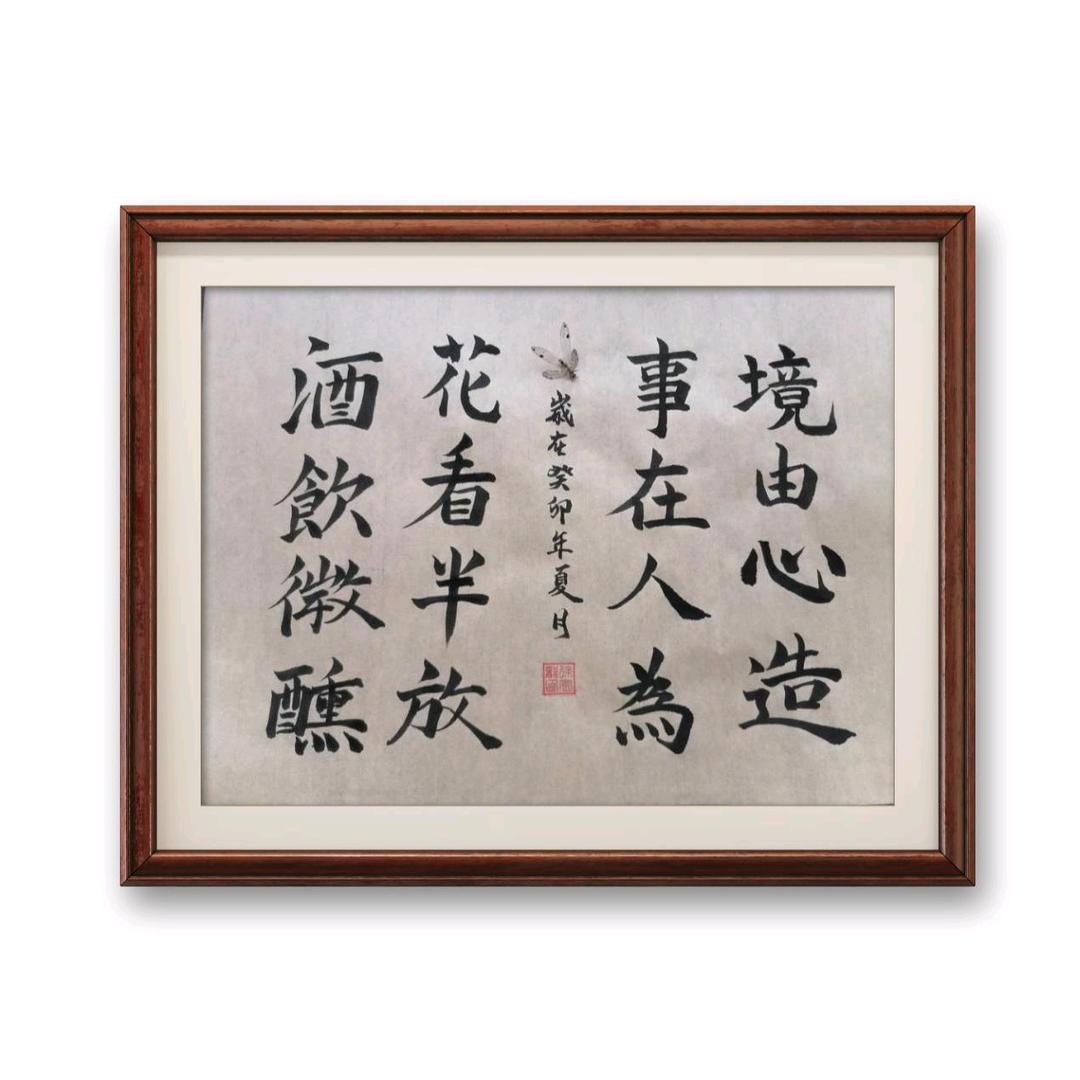 境由心造
事在人為
歲在癸卯年夏月
花看半放
酒飲微醺